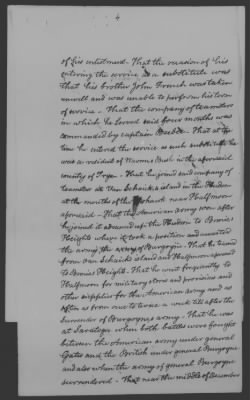 4
of his enlistment - That the reason of his
entering the service as a substitute was
that his brother John French was taken
unwell and was unable to perform his term
of service - That the company of teamsters
in which he served said four months was
commanded by captain - That at the
time he entered the service as such substitute he
was a resident of Bush in the aforesaid
county of Tryon - That he joined said company of
teamsters at Van Schaicks island in the Hudson
at the mouths of the Mohawk near Halfmoon
aforesaid - That the American army soon after
he joined it advanced up the Hudson to Bemis's
Heights where it took a position and awaited
the army of Burgoyne - That he teamed
from Van Schaicks island and Halfmoon aforesaid
to Bemis's Heights - That he went frequently to
Halfmoon for military stores and provisions and
other supplies for the American army and as
often as from one to twice a week till after the
surrender of Burgoynes army - That he was
at Saratoga when both battles were fought
between the American army under general
Gates and the British under general Burgoyne
and also when the army of general Burgoyne
surrendered - That near the middle of December